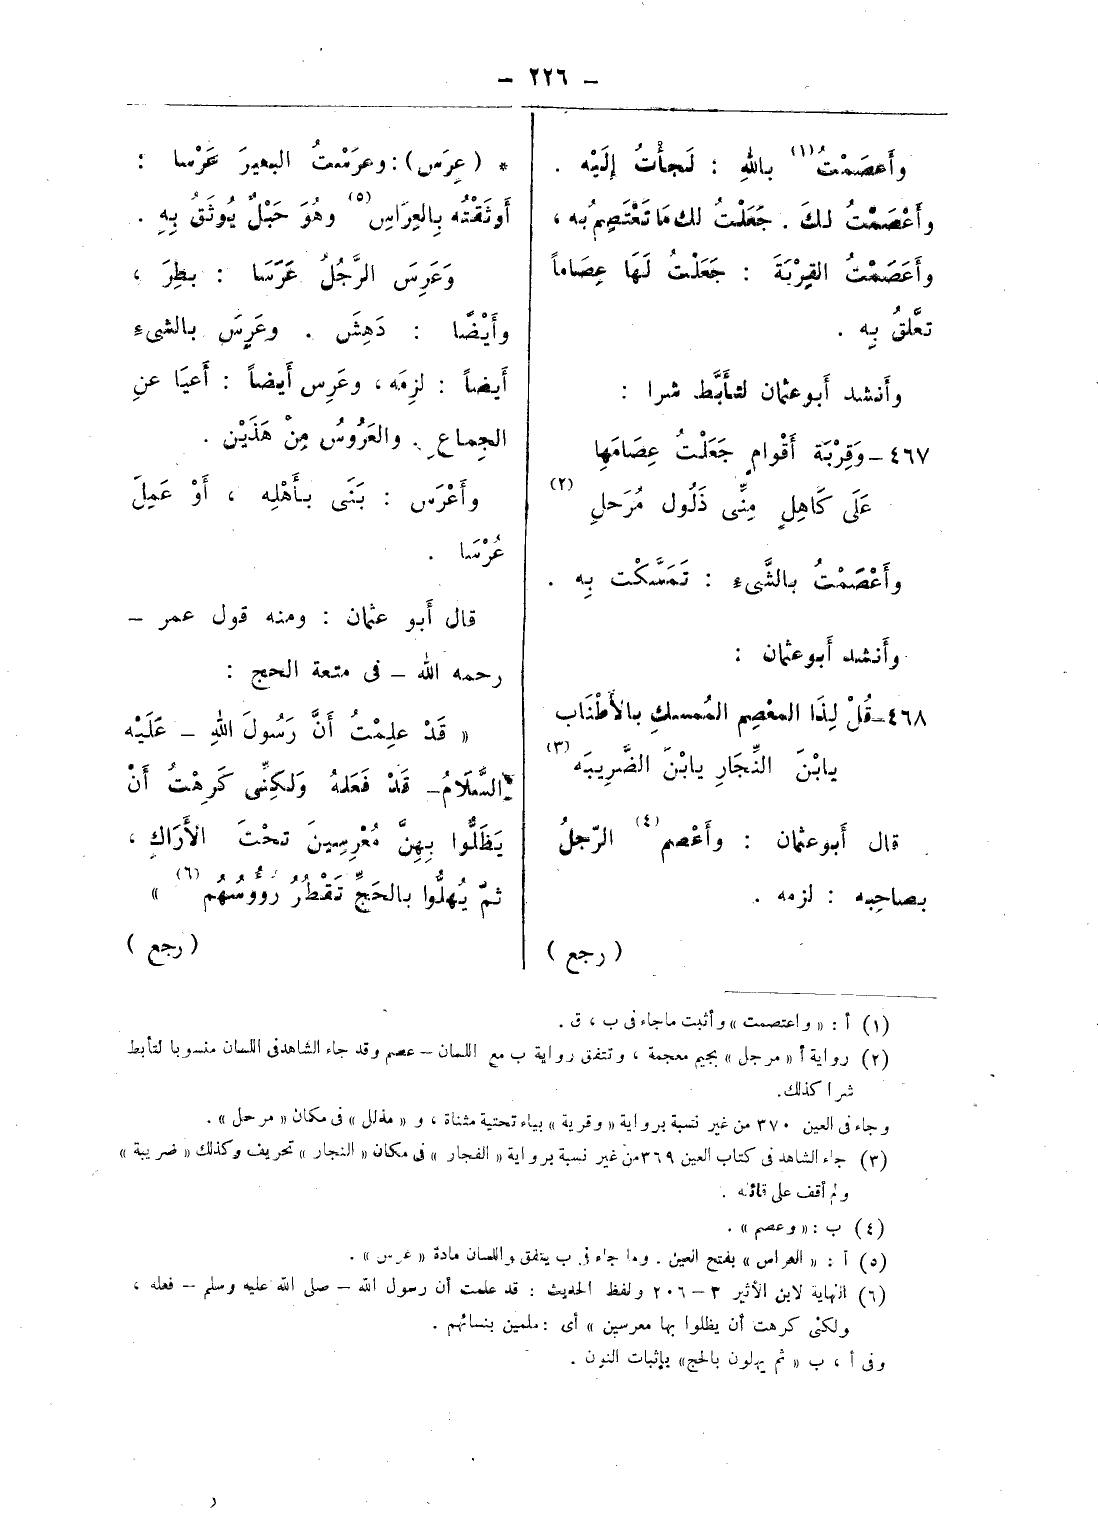 – ٢٢٦ –
وأَعصَمْتُ(١) باللهِ : لَجأْتُ إلَيْه .
وأَعْصَمْتُ لكَ . جَعَلْتُ لك مَا تَعْتَصِمُ به ،
وأَعَصَمْتُ القِرْبَةَ : جَعَلْتُ لَهَا عِصَاماً
تعَّلقُ بِه .
وأَنشد أَبو عثمان لتأَبَّط شرا :
٤٦٧ – وَقِرْبَة أَقْوامٍ جَعَلْتُ عِصَامَها
عَلَى كَاهِلٍ مِنِّى ذَلُول مُرَحلِ (٢)
وأَعْصَمْتُ بالشَّىءِ : تَمَسَّكْت بِه .
وأَنشد أَبو عثمان :
٤٦٨ – قُلْ لِذَا المعْصِم المُمسكِ بالأَطْنَاب
يابْنَ النِّجَارِ يابْنَ الضَّرِيبَه (٣)
قال أَبو عثمان : وأَعْصم (٤) الرّجلُ
بصاحِبه : لزمه .
( رجع )
* ( عِرَس ) : وعرَسْتُ البعيرَ عَرْسا :
أَوثَقْتُه بِالعِرَاس (٥) وهُوَ حَبْلٌ يُوثَقُ بِهِ .
وَعَرِسَ الرَّجُلُ عَرَسَا : بطِرَ ،
وأَيْضًا : دَهِشَ . وعَرِسَ بالشىءِ
أَيضاً : لزِمَه ، وعَرِس أَيضاً : أَعيَا عنِ
الجِماعِ . والعَرُوسُ مِنْ هَذَيْن .
وأَعْرَس : بَنَى بأَهْلِه ، أَوْ عَمِلَ
عُرْسَا .
قال أَبو عثمان : ومنه قول عمر –
رحمه الله – فى متعة الحج :
« قَدْ علِمْتُ أَنَّ رَسُولَ اللهِ – عَلَيْه
السَّلَامُ – قَدْ فَعَلهُ وَلكِنِّى كَرِهْتُ أَنْ
يَظَلُّوا بِهِنَّ مُعْرِسِينَ تحْتَ الأَرَاكِ ،
ثمّ يُهلُّوا بالحَجِّ تَقْطُرُ رُؤُوسُهُم (٦) »
( رجع )
(١) أ : « واعتصمت » وأثبت ماجاء فى ب ، ق .
(٢) رواية أ « مرجل » بجيم معجمة ، وتتفق رواية ب مع اللسان – عصم وقد جاء الشاهد فى اللسان منسوبا لتأبط
شرا كذلك .
وجاء فى العين ٣٧٠ من غير نسبة برواية « وقرية » بياء تحتية مثناة ، و « مذلل » فى مكان « مرحل » .
(٣) جاء الشاهد فى كتاب العين ٣٦٩ من غير نسبة برواية « الفجار » فى مكان « النجار » تحريف وكذلك « ضريبة »
ولم أقف على قائله .
(٤) ب : « وعصم » .
(٥) أ : « العراس » بفتح العين . وما جاء فى ب يتفق واللسان مادة « عرس » .
(٦) النهاية لابن الأثير ٣ – ٢٠٦ ولفظ الحديث : قد علمت أن رسول الله – صلى الله عليه وسلم – فعله ،
ولكنى كرهت أن يظلوا بها معرسين » أى : ملمين بنسائهم .
وفى أ ، ب « ثم يهلون بالحج » بإثبات النون .